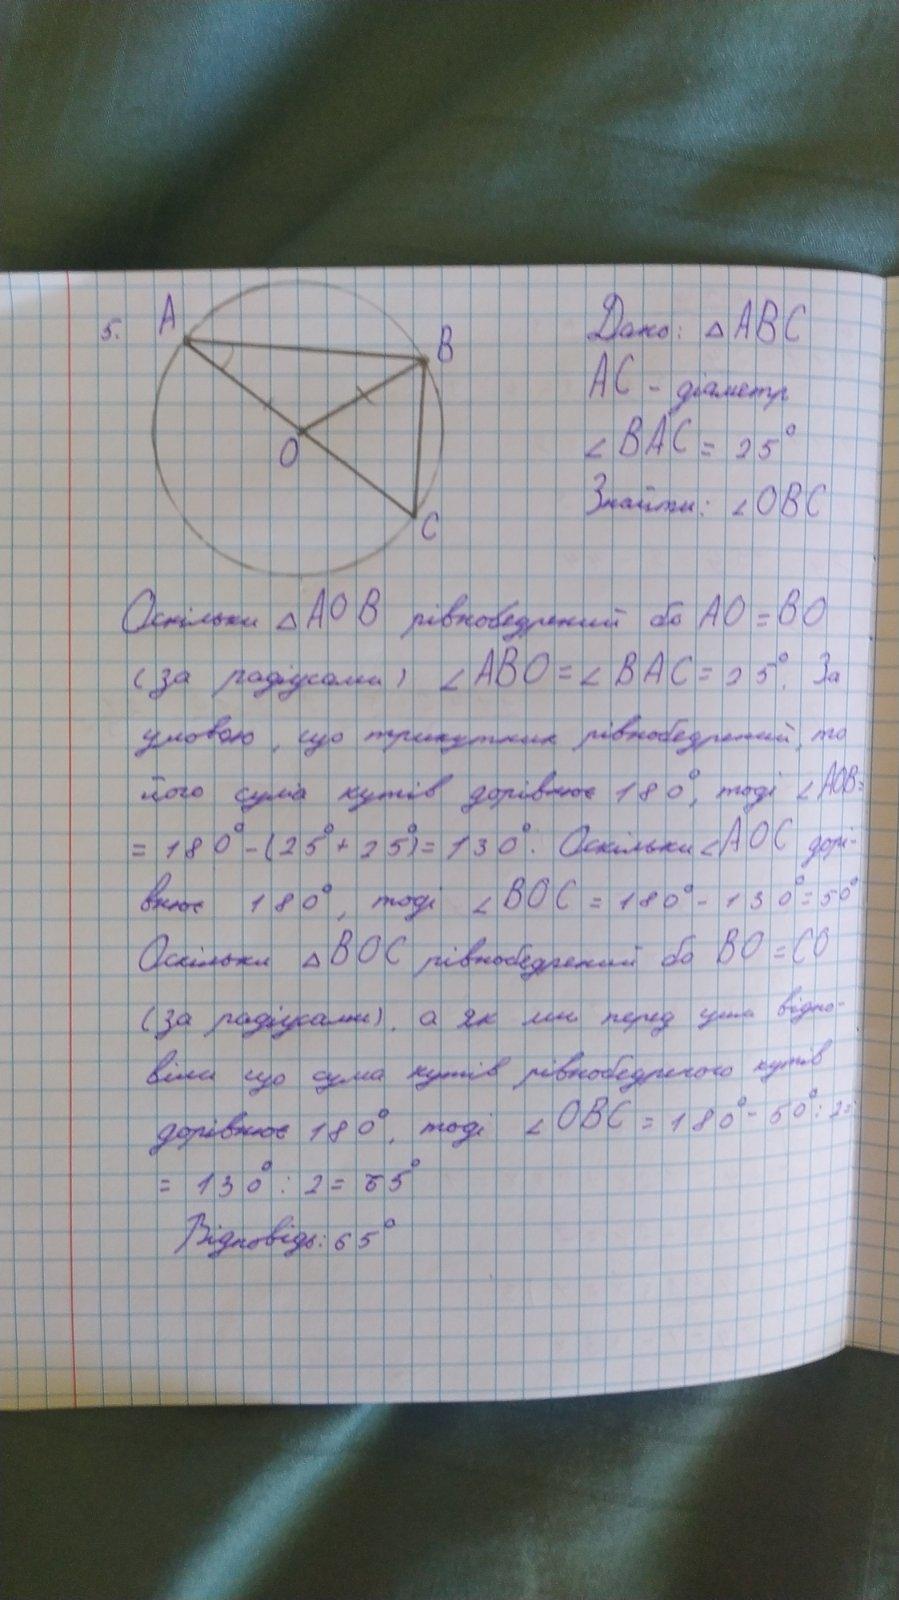 5.
A
B
O
C
Дано: △ABC
AC - діаметр
∠BAC = 25°
Знайти: ∠OBC
Оскільки △AOB рівнобедрений бо AO = BO
(за радіусами) ∠ABO = ∠BAC = 25°. За
умовою, що трикутник рівнобедрений, то
його сума кутів дорівнює 180°, тоді ∠AOB=
= 180° - (25° + 25°) = 130°. Оскільки ∠AOC дорі-
внює 180°, тоді ∠BOC = 180° - 130° = 50°
Оскільки △BOC рівнобедрений бо BO = CO
(за радіусами), а як ми перед цим відпо-
віли що сума кутів рівнобедреного кутів
дорівнює 180°, тоді ∠OBC = 180° - 50° : 2 =
= 130° : 2 = 65°
Відповідь: 65°